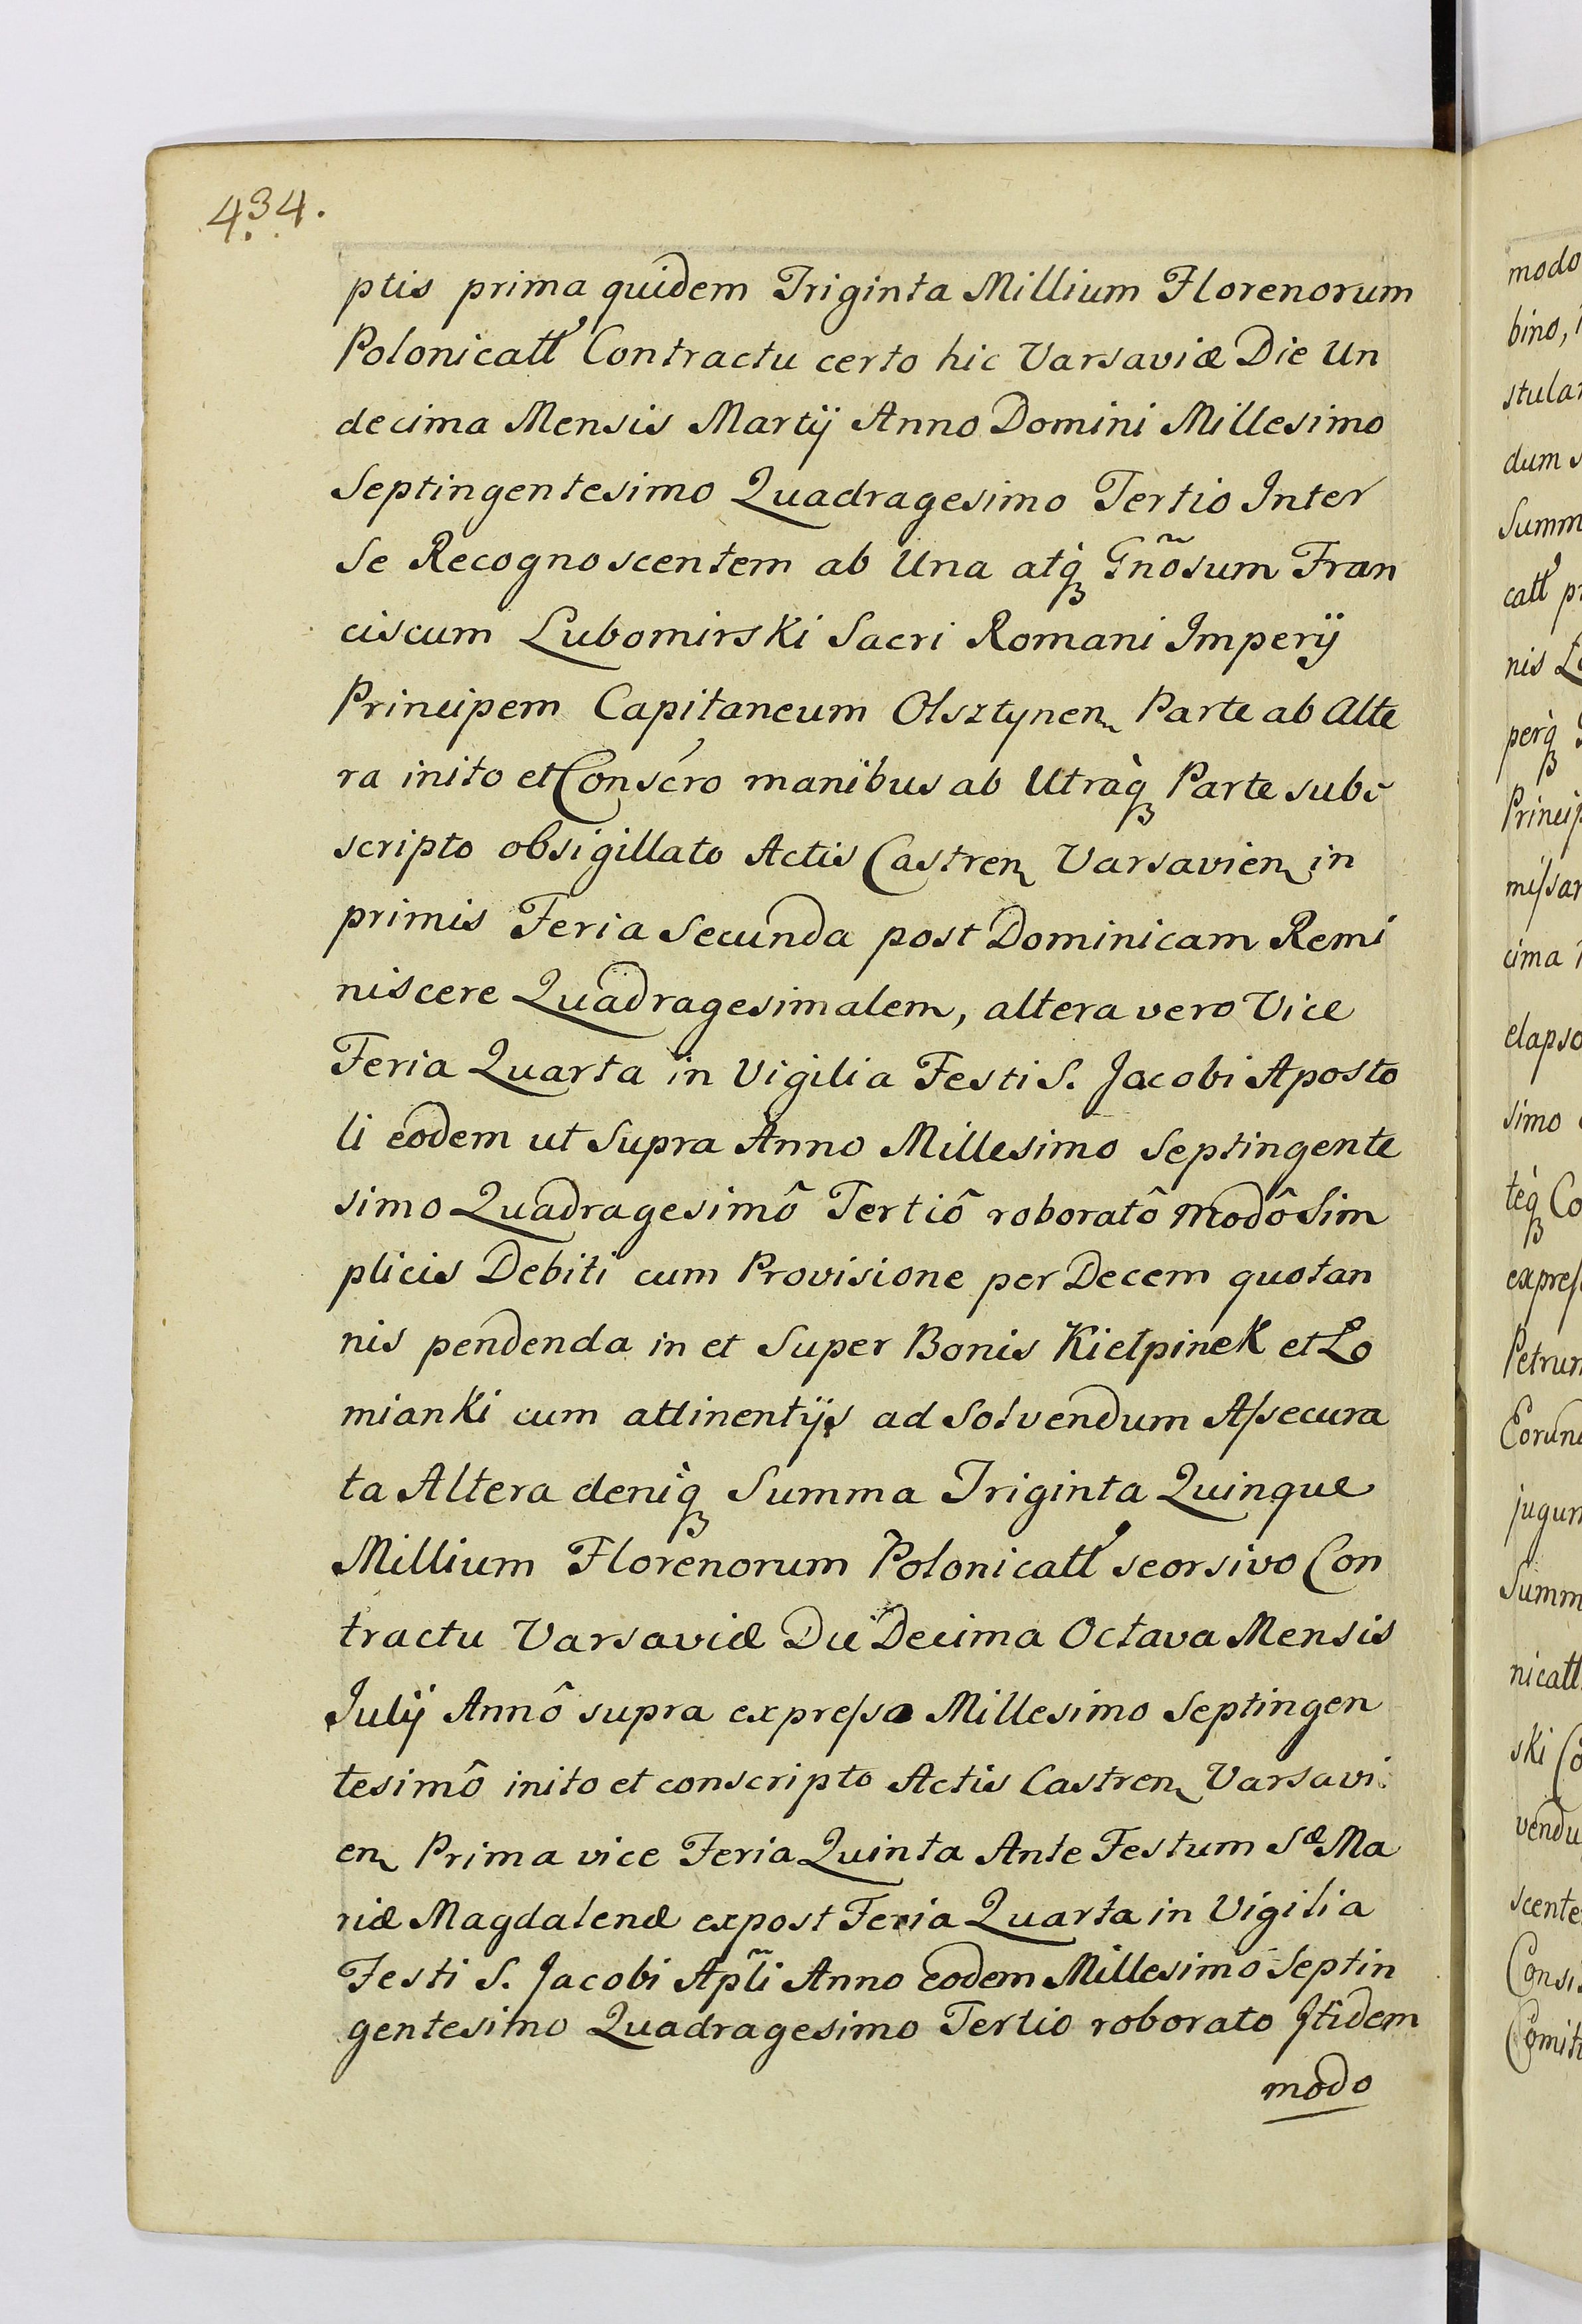 434.
ptis prima quidem Triginta Millium Florenorum
Polonicall Contractu certo hic Varsaviæ Die Un
decima Mensis Martij Anno Domini Millesimo
Septingentesimo Quadragesimo Tertio Inter
Se Recognoscentem ab Una atq̀ Gnõsum Fran
ciscum Lubomirski Sacri Romani Imperij
Principem Capitaneum Olsztynen Parte ab Alte
ra inito et Conscro manibus ab Utraq̀ Parte subs
scripto obsigillato Actis Castren Varsavien in
primis Feria Secunda post Dominicam Remi
niscere Quadragesimalem, altera vero Vice
Feria Quarta in Vigilia Festi S. Jacobi Aposto
li eodem ut Supra Anno Millesimo Septingente
simo Quadragesimô Tertiô roboratô modô Sim
plicis Debiti cum Provisione per Decem quotan
nis pendenda in et Super Bonis Kiełpinek et Ło
mianki cum attinentijs ad Solvendum Aſsecura
ta Altera deniq̀ Summa Triginta Quinque
Millium Florenorum Polonicall seorsivo Con
tractu Varsaviæ Die Decima Octava Mensis
Julij Annô supra expreſso Millesimo Septingen
tesimô inito et conscripto Actis Castren Varsavi
en Prima vice Feria Quinta Ante Festum Sæ Ma
riæ Magdalenæ expost Feria Quarta in Vigilia
Festi S. Jacobi Apl̃i Anno eodem Millesimo Septin
gentesimo Quadragesimo Tertio roborato Itidem
modo
modo
bino,
stula
dum
Summ
call
nis
perq̀
Princip
miſsar
cima
elapso
simo
teq̀ Co
expreſ
Petrum
Eorund
jugum
Summ
nicall
ski
vendu
scente
Consi
Comit